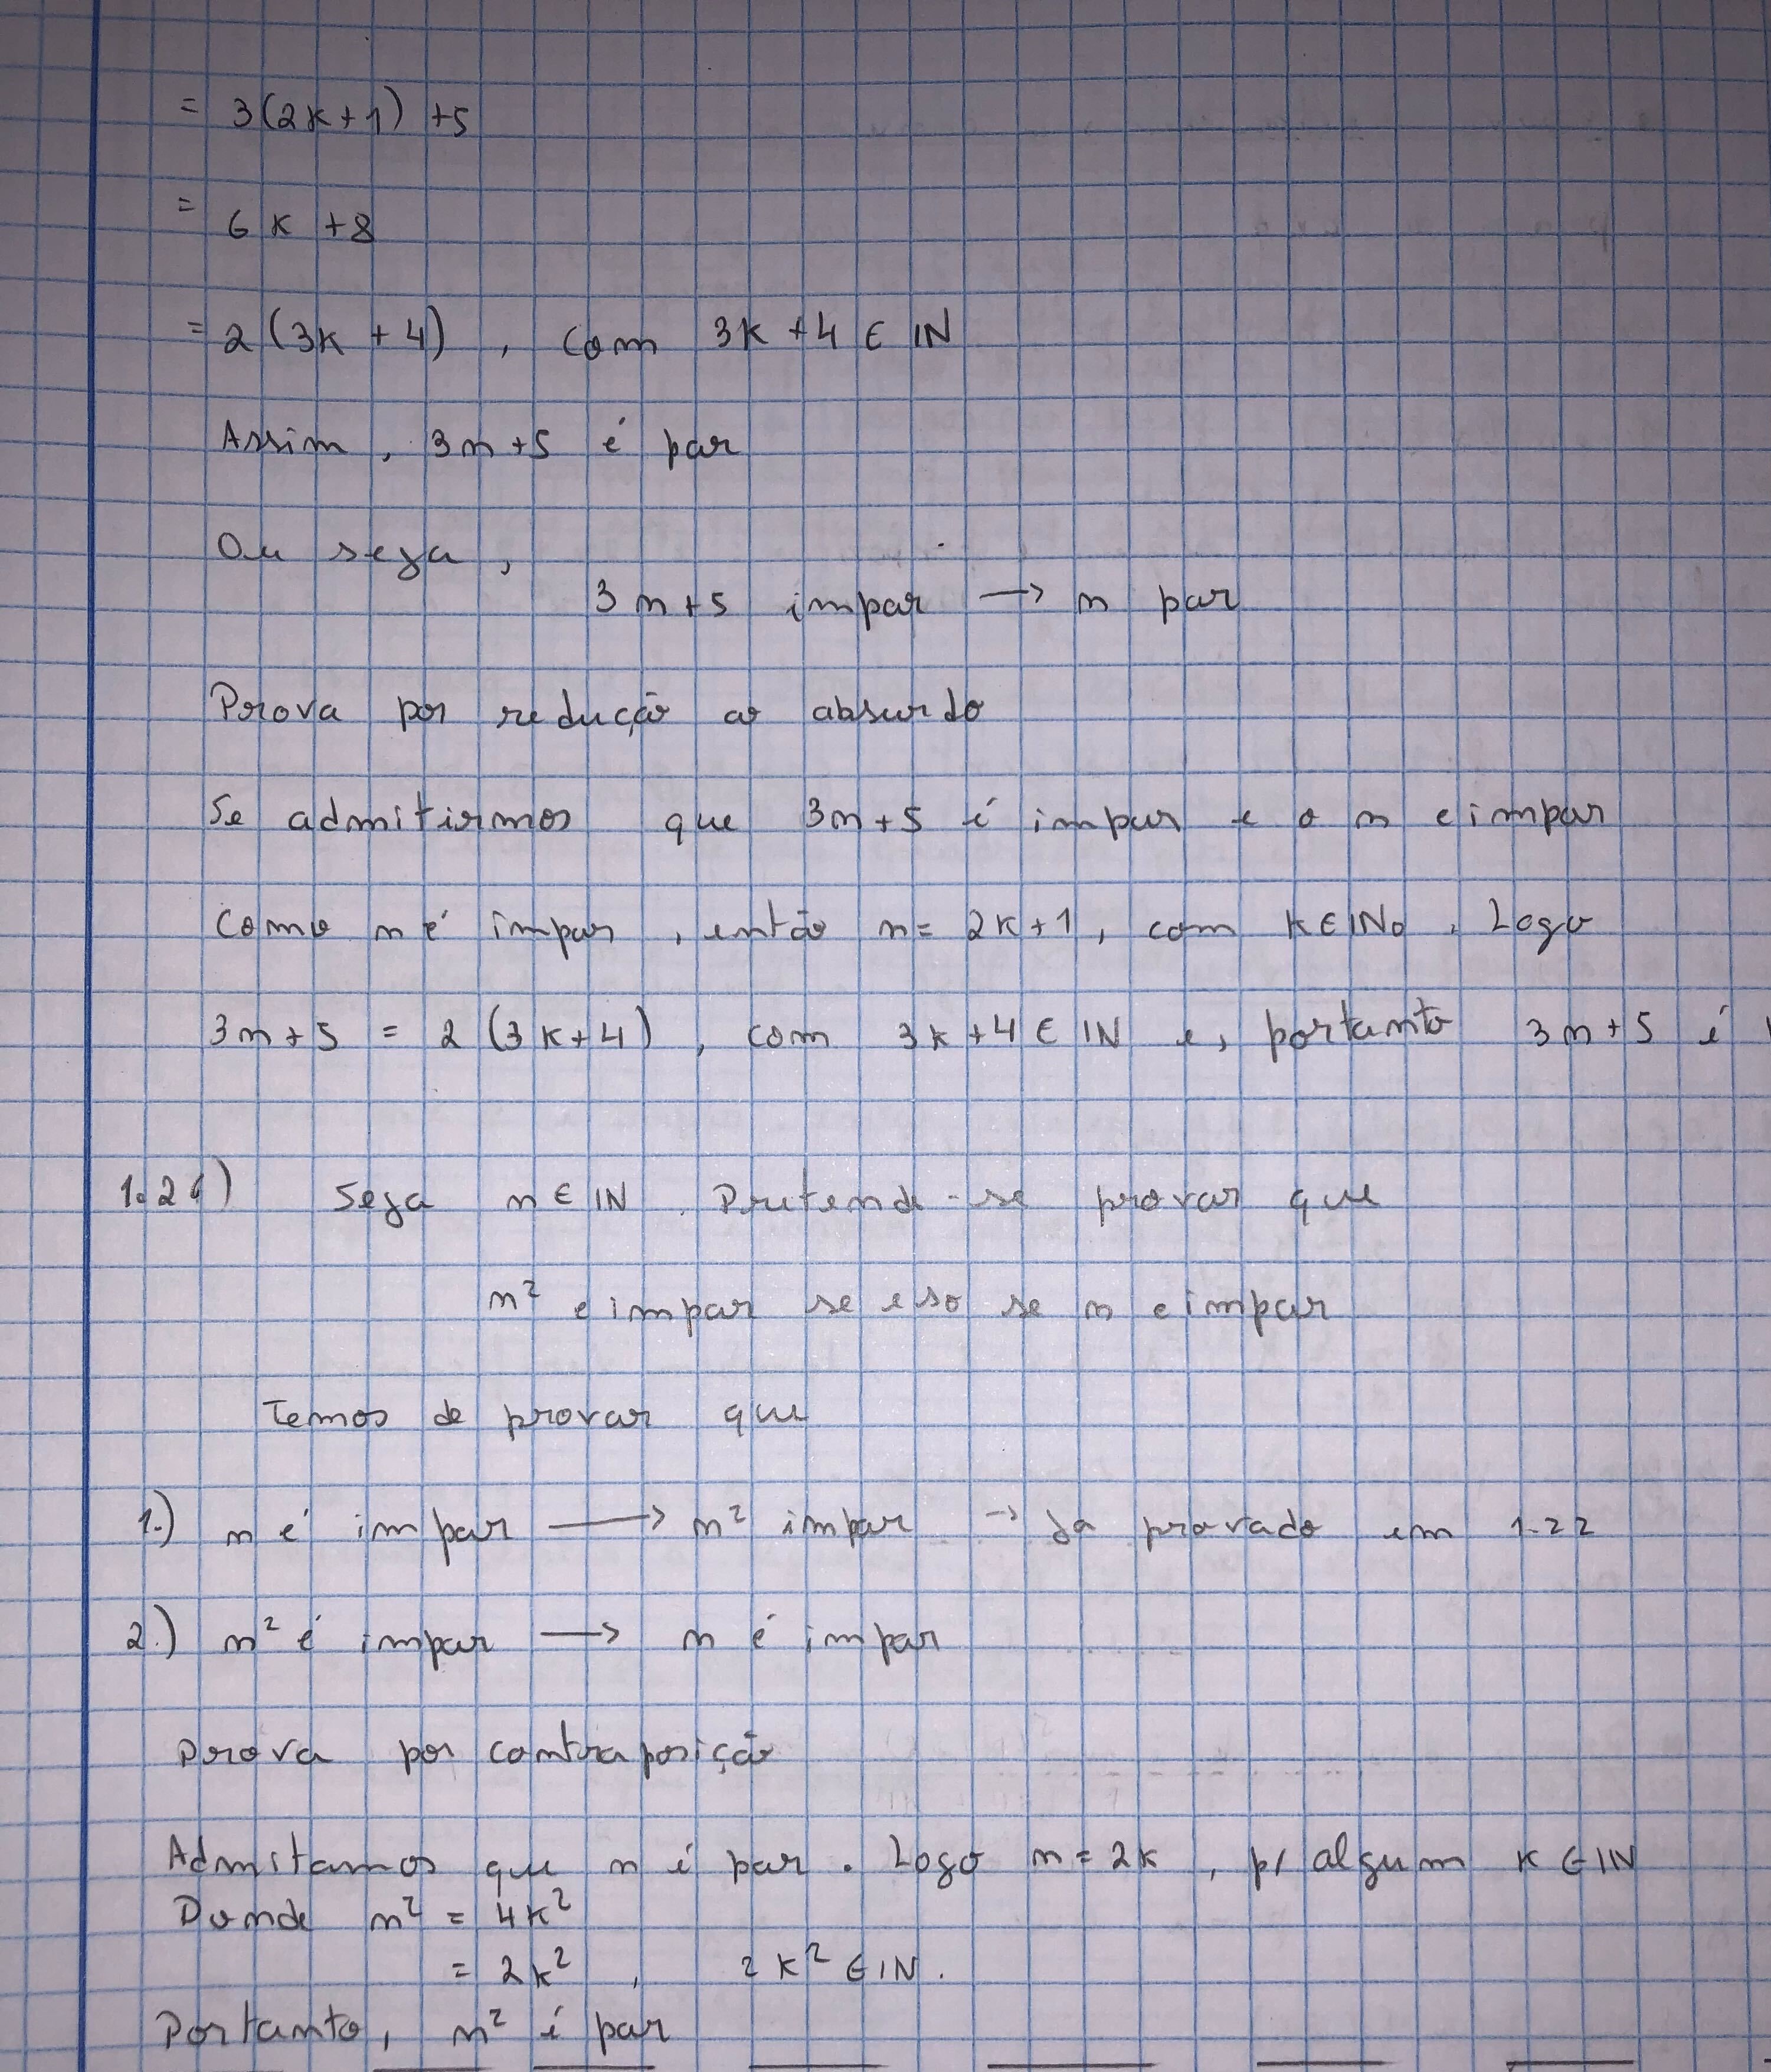 = 3(2k+1) +5
= 6k +8
= 2 (3k + 4) , com 3k +4 ∈ IN
Assim, 3n+5 é par
Ou seja,
3n+5 impar → n par
Prova por redução ao absurdo
Se admitirmos que 3n+5 é impar e o n e impar
Como n é impar , então n= 2k+1, com k∈INo . Logo
3n+5 = 2 (3k+4) , com 3k+4 ∈ IN e, portanto 3n+5 é
Seja n ∈ IN . Pretende-se provar que
n² e impar se e so se n e impar
Temos de provar que
1.) n é impar → n² impar → Ja provado em 1.22
2.) n² é impar → n é impar
Prova por contraposição
Admitamos que n é par . Logo n = 2k , p/ algum k ∈ IN
Donde n² = 4k²
= 2k² , 2k² ∈ IN.
Portanto, n² é par